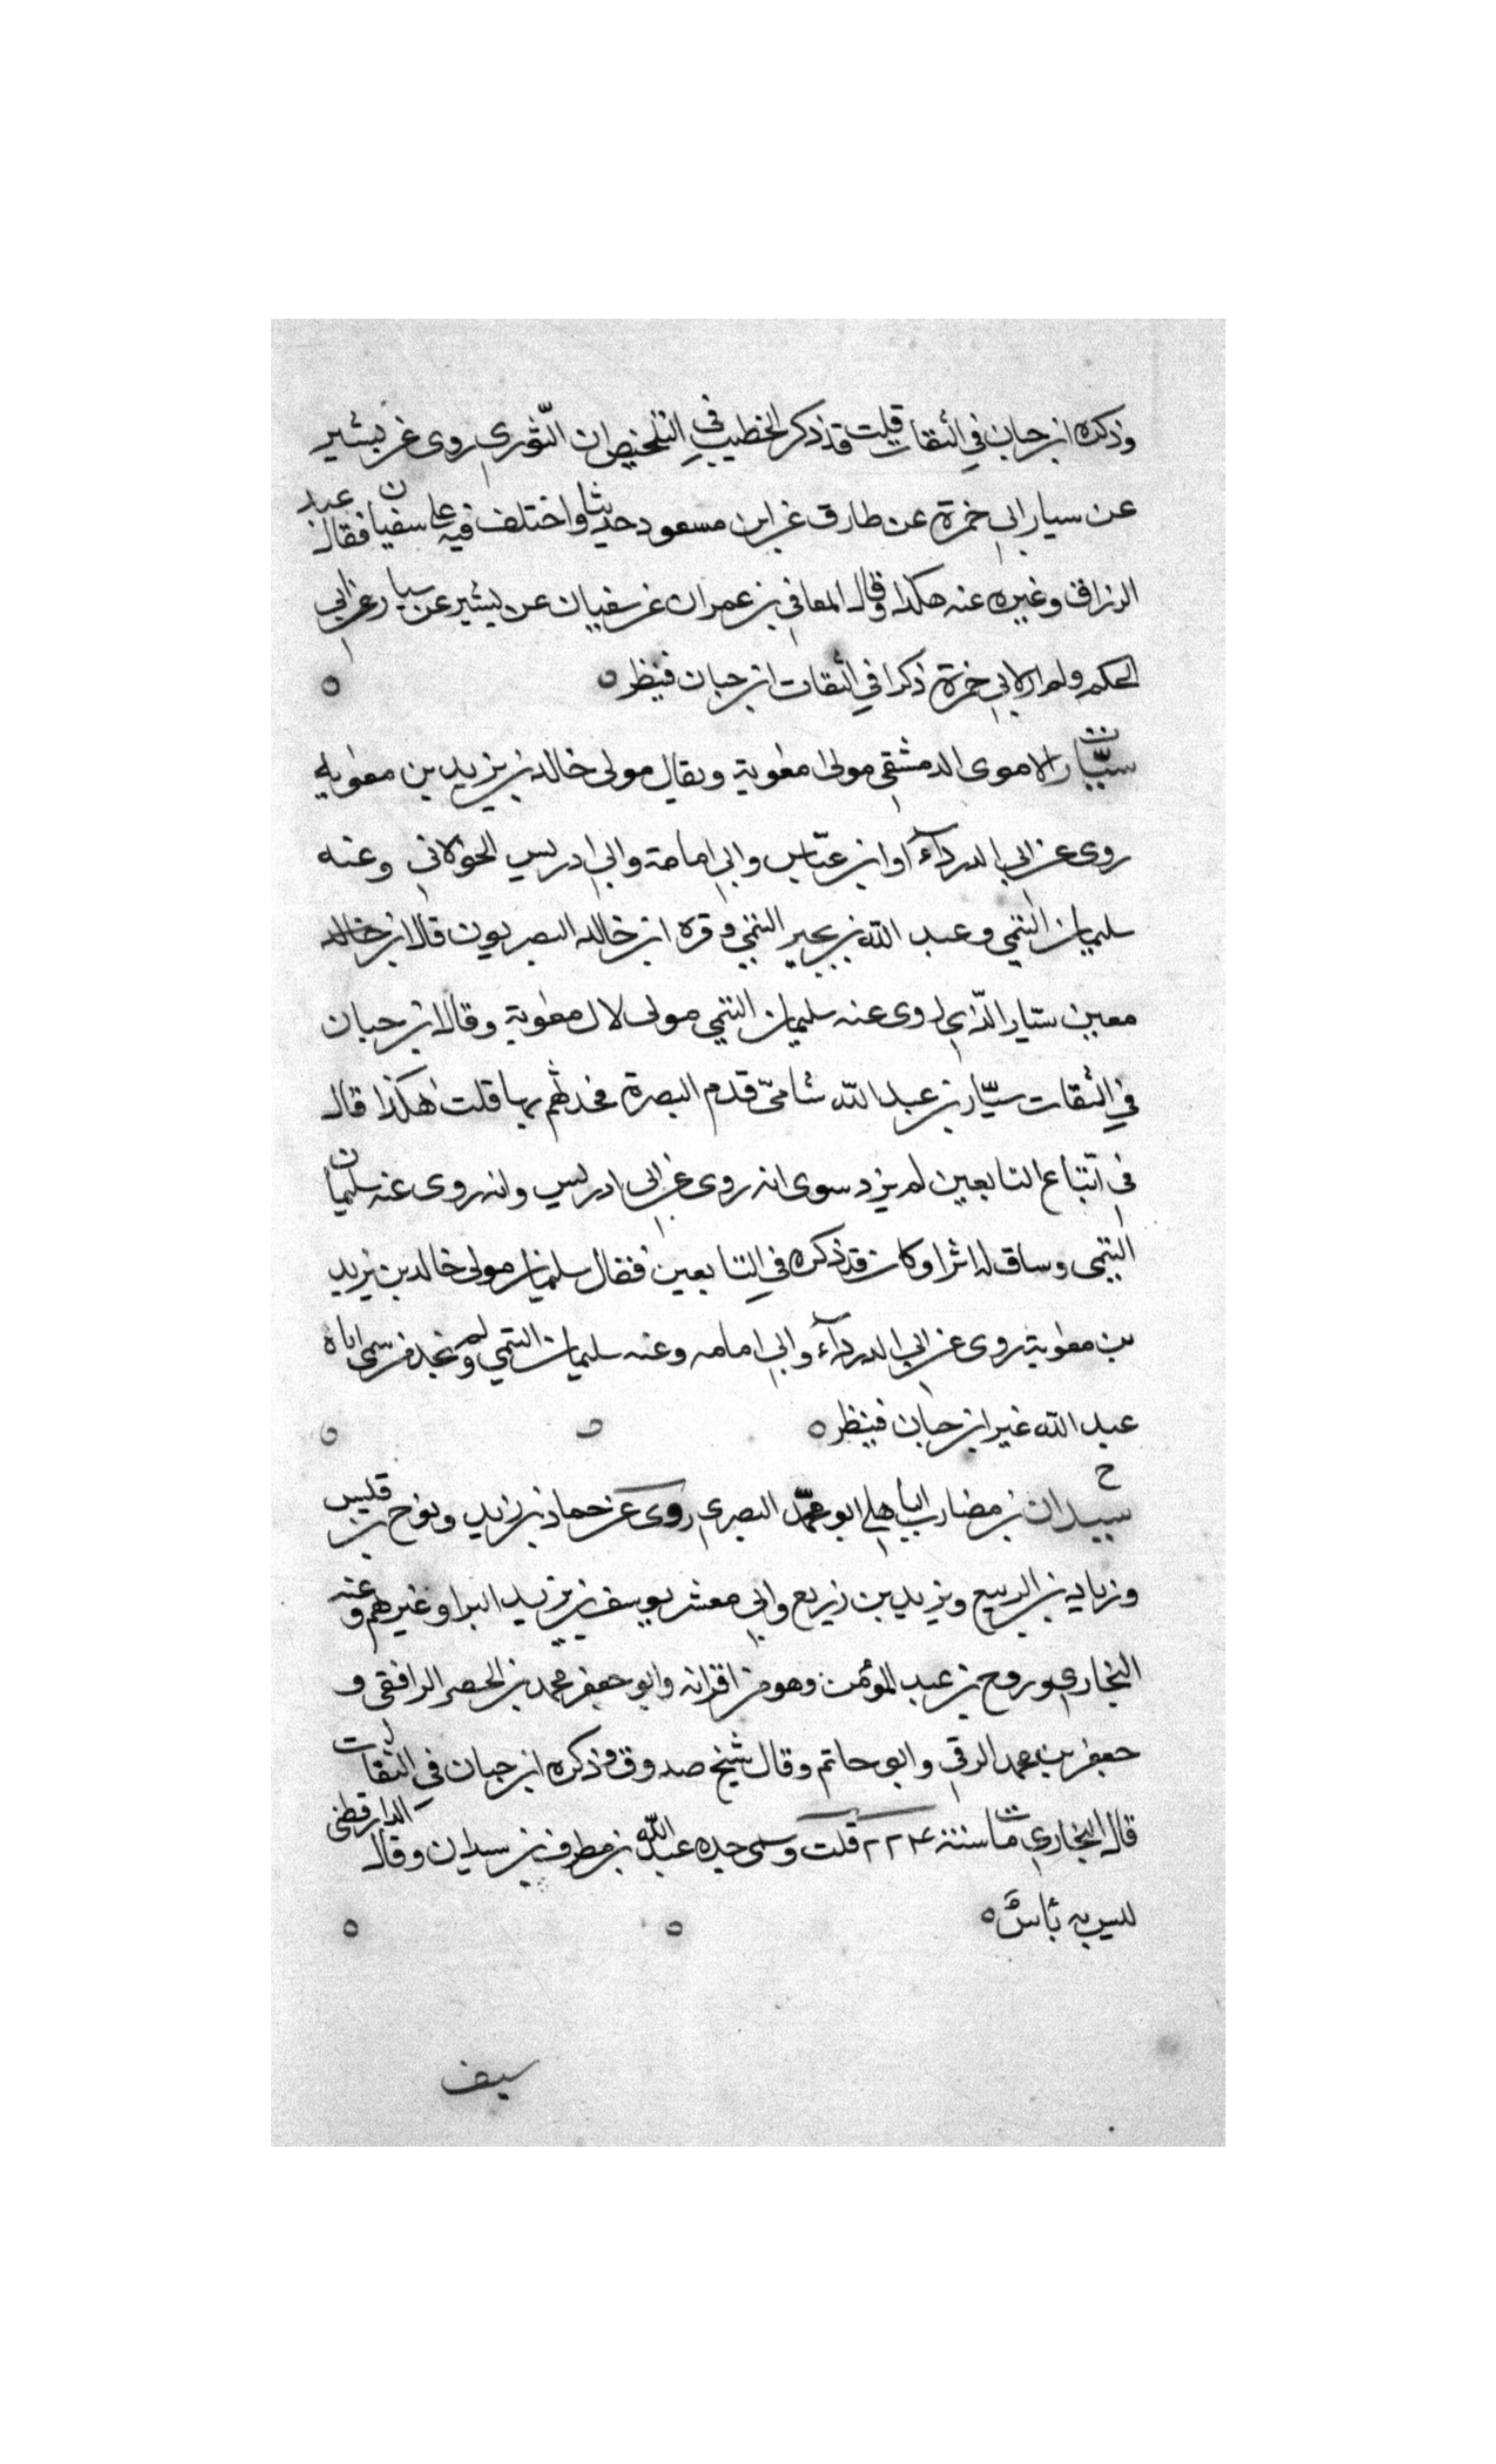 وذكره ابن حبان في الثقات قلت قد ذكر الخطيب في التلخيص ان الثوري روى عن بشير
عن سيار ابي حمزة عن طارق عن ابن مسعود حديثا واختلف فيه على سفيان فقال عبد
الرزاق وغيره عنه هكذا وقال المعافى بن عمران عن سفيان عن بشير عن سيار عن ابي
الحكم ولم ار لابي حمزة ذكرا في الثقات ابن حبان فينظر ه
ت سيار الاموى الدمشقي مولى معوية ويقال مولى خالد بن يزيد بن معوية
روى عن ابي الدرداء وابن عباس وابي امامة وابي ادريس الخولاني وعنه
سليمان التيمي وعبد الله بن بحير التيمي وقرة ابن خالد البصريون قال ابن خالد
معين سيار الذي روى عنه سليمان التيمي مولى لال معوية وقال ابن حبان
في الثقات سيار بن عبد الله شامي قدم البصرة فحدثهم بها قلت هكذا قال
في اتباع التابعين لم يزد سوى انه روى عن ابي ادريس وانه روى عنه سليمان
التيمي وساق له اثرا وكان قد ذكره في التابعين فقال سليمان مولى خالد بن يزيد
بن معوية روى عن ابي الدرداء وابي امامه وعنه سليمان التيمي ولم نجد من سمى اباه
عبد الله غير ابن حبان فينظر ه
خ سيدان بن مضارب الباهلي ابو محمد البصري روى عن حماد بن زيد ونوح بن قيس
وزياد بن الربيع ويزيد بن زريع وابي معشر يوسف بن يزيد البرا وغيرهم وعنه
البخاري وروح بن عبد المؤمن وهو من اقرانه وابو جعفر محمد بن الخضر الرافقي و
جعفر بن محمد الرقي وابو حاتم وقال شيخ صدوق وذكره ابن حبان في الثقات
قال البخاري مات سنة ٢٢٤ قلت وسمى جده عبد الله بن مطرف بن سيدان وقال الدارقطني
ليس به بأس ه
سيف